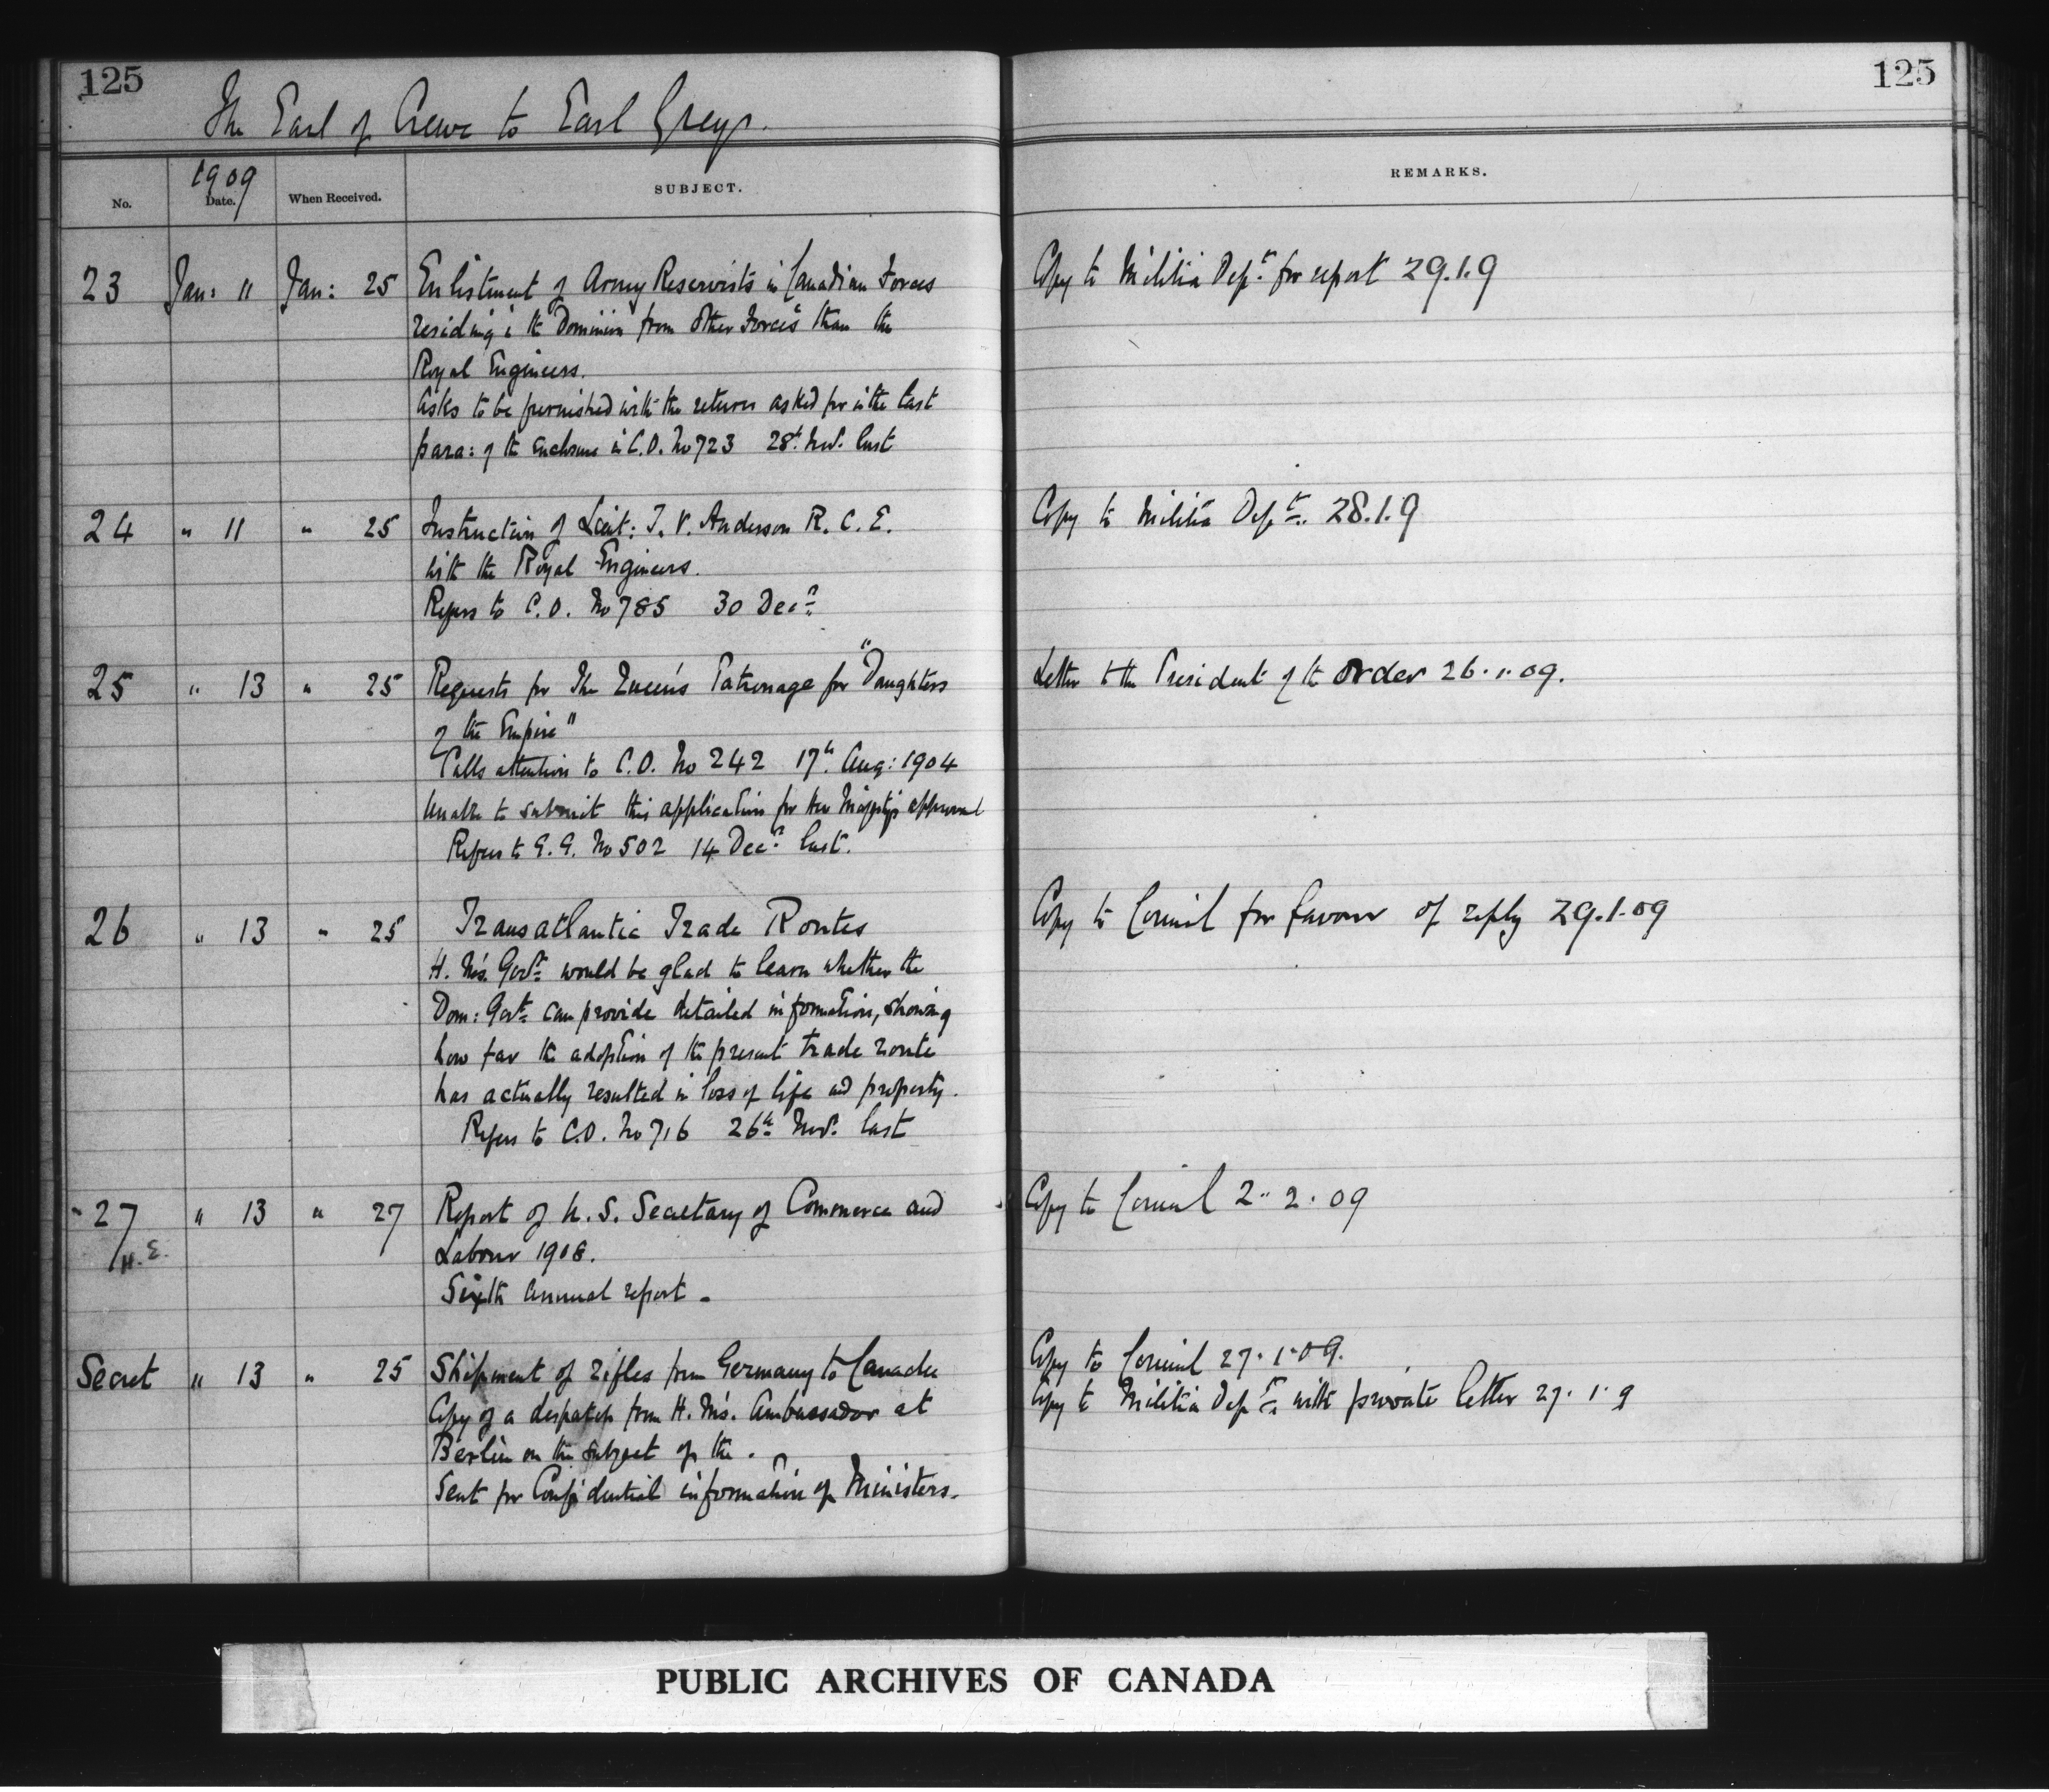 125
125
The Earl of Crewe to Earl Grey.
No.
1909
Date.
When Received.
SUBJECT.
REMARKS.
23 Jan: 11 Jan: 25 Enlistment of Army Reservists in Canadian Forces
residing in the Dominion from other forces than the
Royal Engineers.
Asks to be furnished with the return asked for in the last
para: of the enclosure in C.O. No 723 28th Nov. last
Copy to Militia Dept. for report 29.1.9
24 " 11 " 25 Instruction of Lieut: T. V. Anderson R. C. E.
with the Royal Engineers.
Refers to C.O. No 785 30 Decr.
Copy to Militia Dept. 28.1.9
25 " 13 " 25 Requests for The Queen's Patronage for "Daughters
of the Empire"
Calls attention to C.O. No 242 17th Aug: 1904
Unable to submit this application for Her Majesty's approval
Refers to G.G. No 502 14 Decr. last.
Letter to the President of the Order 26.1.09.
26 " 13 " 25 Transatlantic Trade Routes
H. M's. Govt. would be glad to learn whether the
Dom: Govt. can provide detailed information, showing
how far the adoption of the present trade route
has actually resulted in loss of life and property.
Refers to C.O. No 716 26th Nov. last
Copy to Council for favour of reply 29.1.09
27 " 13 " 27 Report of U. S. Secretary of Commerce and
H. E.
Labour 1908.
Sixth annual report.
Copy to Council 2.2.09
Secret " 13 " 25 Shipment of rifles from Germany to Canada
Copy of a despatch from H. M's. Ambassador at
Berlin on the subject of the.
Sent for Confidential information of Ministers.
Copy to Council 27.1.09.
Copy to Militia Dept. with private letter 27.1.9
PUBLIC ARCHIVES OF CANADA